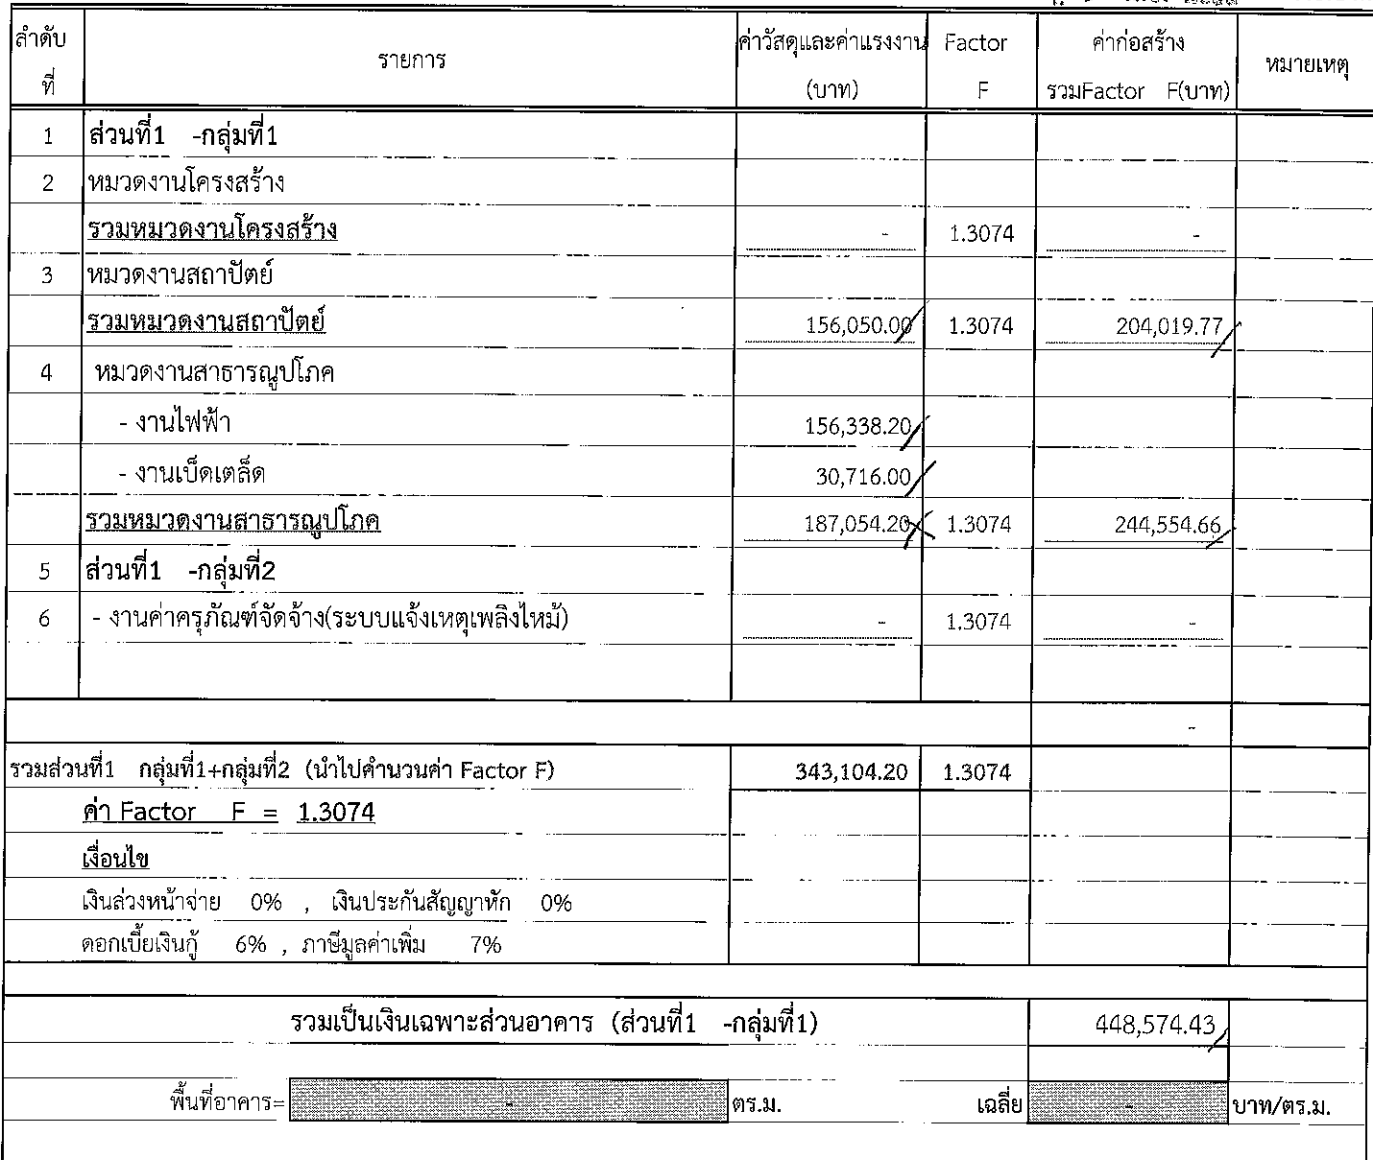 ลำดับที่ รายการ ค่าวัสดุและค่าแรงงาน (บาท) Factor F ค่าก่อสร้าง รวมFactor F(บาท) หมายเหตุ
1 ส่วนที่1 -กลุ่มที่1
2 หมวดงานโครงสร้าง
รวมหมวดงานโครงสร้าง - 1.3074 -
3 หมวดงานสถาปัตย์
รวมหมวดงานสถาปัตย์ 156,050.00 1.3074 204,019.77
4 หมวดงานสาธารณูปโภค
- งานไฟฟ้า 156,338.20
- งานเบ็ดเตล็ด 30,716.00
รวมหมวดงานสาธารณูปโภค 187,054.20 1.3074 244,554.66
5 ส่วนที่1 -กลุ่มที่2
6 - งานค่าครุภัณฑ์จัดจ้าง(ระบบแจ้งเหตุเพลิงไหม้) - 1.3074 -
-
รวมส่วนที่1 กลุ่มที่1+กลุ่มที่2 (นำไปคำนวนค่า Factor F) 343,104.20 1.3074
ค่า Factor F = 1.3074
เงื่อนไข
เงินล่วงหน้าจ่าย 0% , เงินประกันสัญญาหัก 0%
ดอกเบี้ยเงินกู้ 6% , ภาษีมูลค่าเพิ่ม 7%
รวมเป็นเงินเฉพาะส่วนอาคาร (ส่วนที่1 -กลุ่มที่1) 448,574.43
พื้นที่อาคาร= - ตร.ม. เฉลี่ย - บาท/ตร.ม.